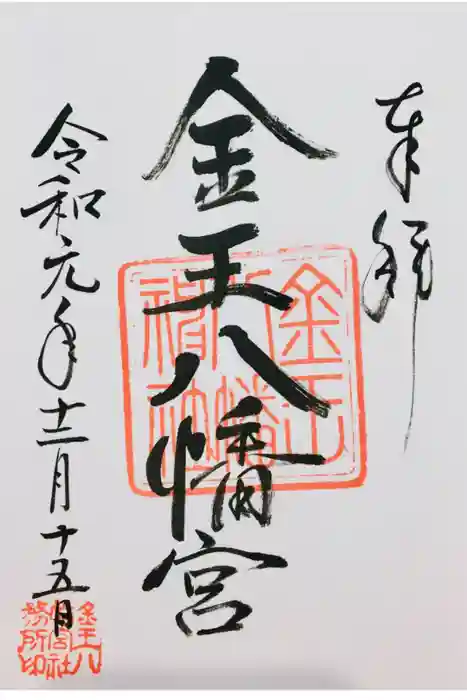 奉拝
金王八幡宮
令和元年十二月十五日
金王八幡神社
金王八幡宮社務所印